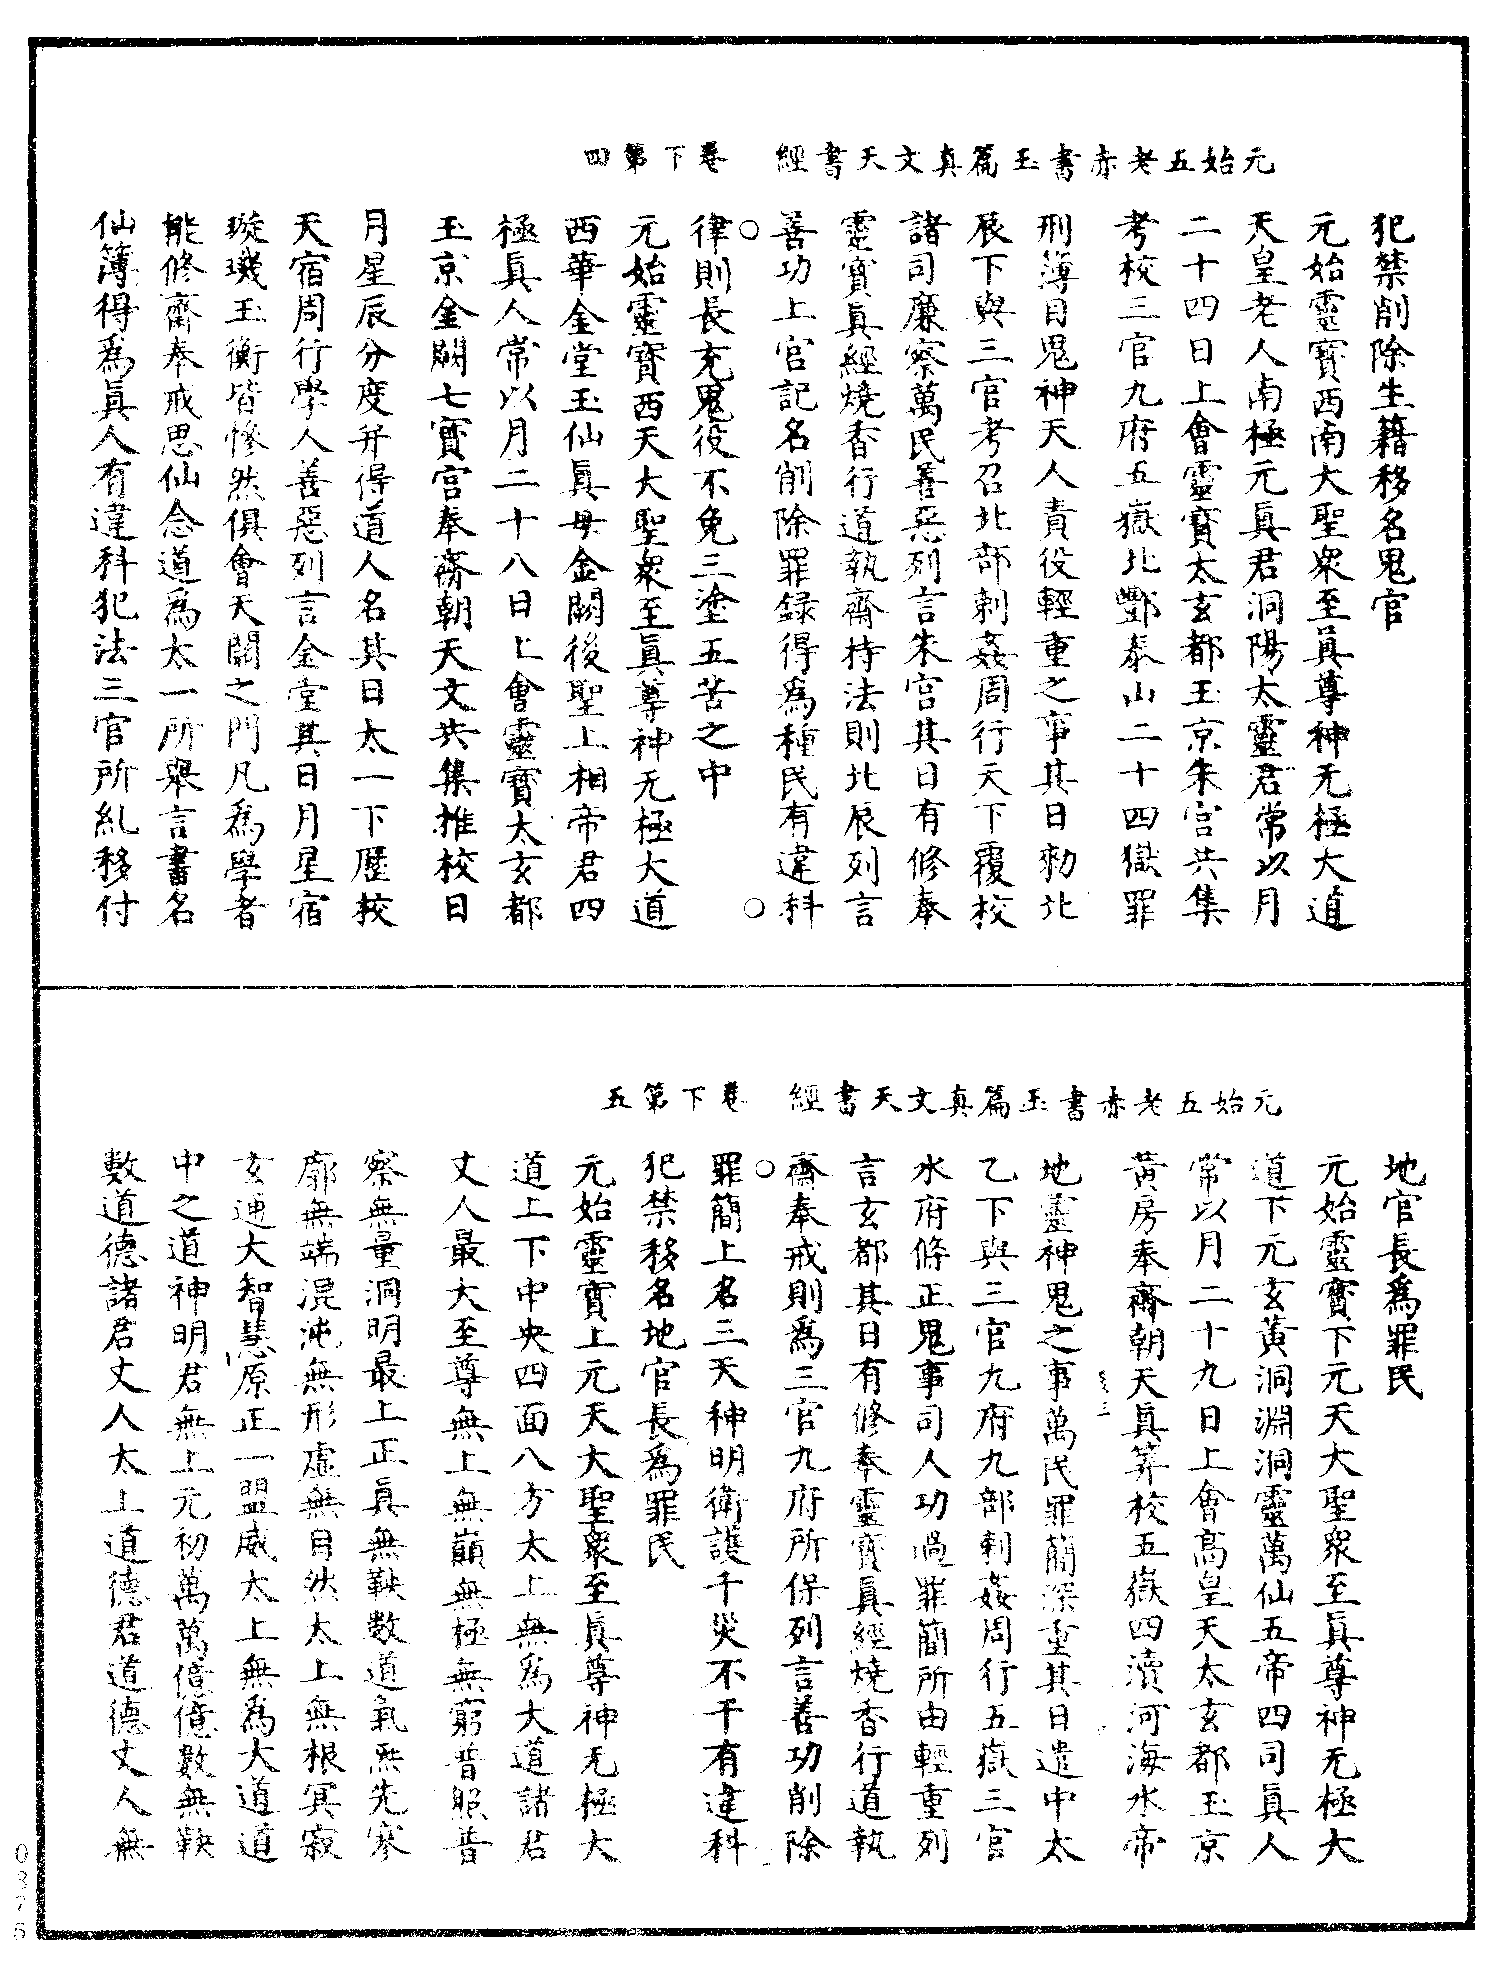 元始五老赤書玉篇真文天書經　卷下第四
犯禁削除生籍移名鬼官
元始靈寶西南大聖衆至真尊神无極大道
天皇老人南極元真君洞陽太靈君常以月
二十四日上會靈寶太玄都玉京朱宮共集
考校三官九府五嶽北酆泰山二十四獄罪
刑簿目鬼神天人責役輕重之事其日勑北
辰下與三官考召北部刺姦周行天下覆校
諸司廉察萬民善惡列言朱宮其日有修奉
靈寶真經燒香行道執齋持法則北辰列言
善功上官記名削除罪録得爲種民有違科
律則長充鬼役不免三塗五苦之中
元始靈寶西天大聖衆至真尊神无極大道
西華金堂玉仙真母金闕後聖上相帝君四
極真人常以月二十八日上會靈寶太玄都
玉京金闕七寶宮奉齋朝天文共集推校日
月星辰分度并得道人名其日太一下歷校
天宿周行學人善惡列言金堂其日月星宿
璇璣玉衡皆慘然俱會天關之門凡爲學者
能修齋奉戒思仙念道爲太一所舉言書名
仙簿得爲真人有違科犯法三官所糺移付
元始五老赤書玉篇真文天書經　卷下第五
地官長爲罪民
元始靈寶下元天大聖衆至真尊神无極大
道下元玄黃洞淵洞靈萬仙五帝四司真人
常以月二十九日上會高皇天太玄都玉京
黃房奉齋朝天真筭校五嶽四瀆河海水帝
地靈神鬼之事萬民罪簡深重其日遣中太
乙下與三官九府九部刺姦周行五嶽三官
水府條正鬼事司人功過罪簡所由輕重列
言玄都其日有修奉靈寶真經燒香行道執
齋奉戒則爲三官九府所保列言善功削除
罪簡上名三天神明衛護千災不干有違科
犯禁移名地官長爲罪民
元始靈寶上元天大聖衆至真尊神无極大
道上下中央四面八方太上無爲大道諸君
丈人最大至尊無上無巔無極無窮普照普
察無量洞明最上正真無鞅數道氣炁先寥
廓無端混沌無形虛無自然太上無根冥寂
玄通大智慧原正一盟威太上無爲大道道
中之道神明君無上元初萬萬億億數無鞅
數道德諸君丈人太上道德君道德丈人無